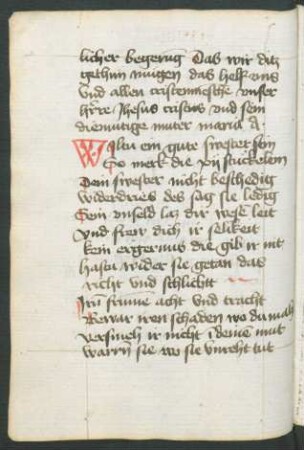 licher begerug Das wir ditz
gethun mugen das helf uns
vnd allen cristenmesche vnser
h're Jhesus cristus vnd sein
diemutige muter maria A
Wiltu ein gute swester sein
So merk die xij stuckelein
Dein swester nicht beschedig
widerdries des sag sie ledig
Sein vnseld laz dir wese leit
vnd frew dich ir selikeit
kein ergernus die gib ir nit
hastu wider sie getan das
richt vnd schlicht
Irn frume acht vnd tracht
Bewar iren schaden wo du mah
versmeh ir nicht i deine mut
warn sie wo sie vnreht tut